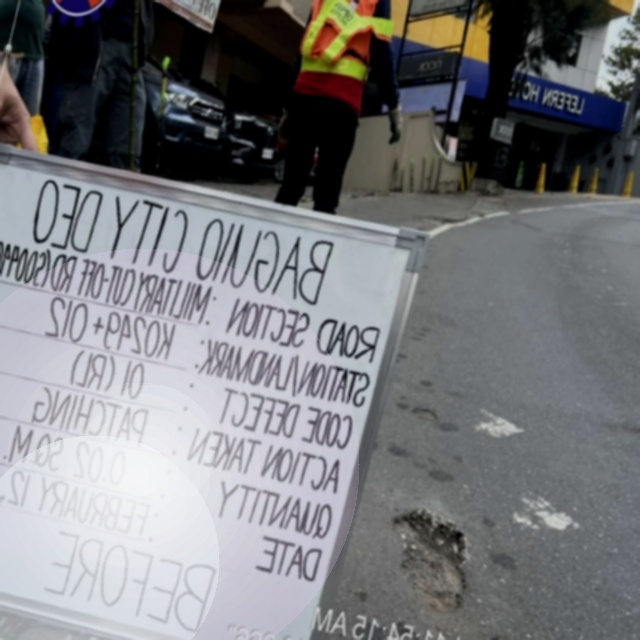 BAGUIO CITY DEO
ROAD SECTION : MILITARY CUT-OFF RD
STATION/LANDMARK : K0249+012
CODE DEFECT : 01 (RL)
ACTION TAKEN : PATCHING
QUANTITY : 0.02 SQ.M.
DATE : FEBRUARY 12,
BEFORE
ULFERN HOTEL
15 AM